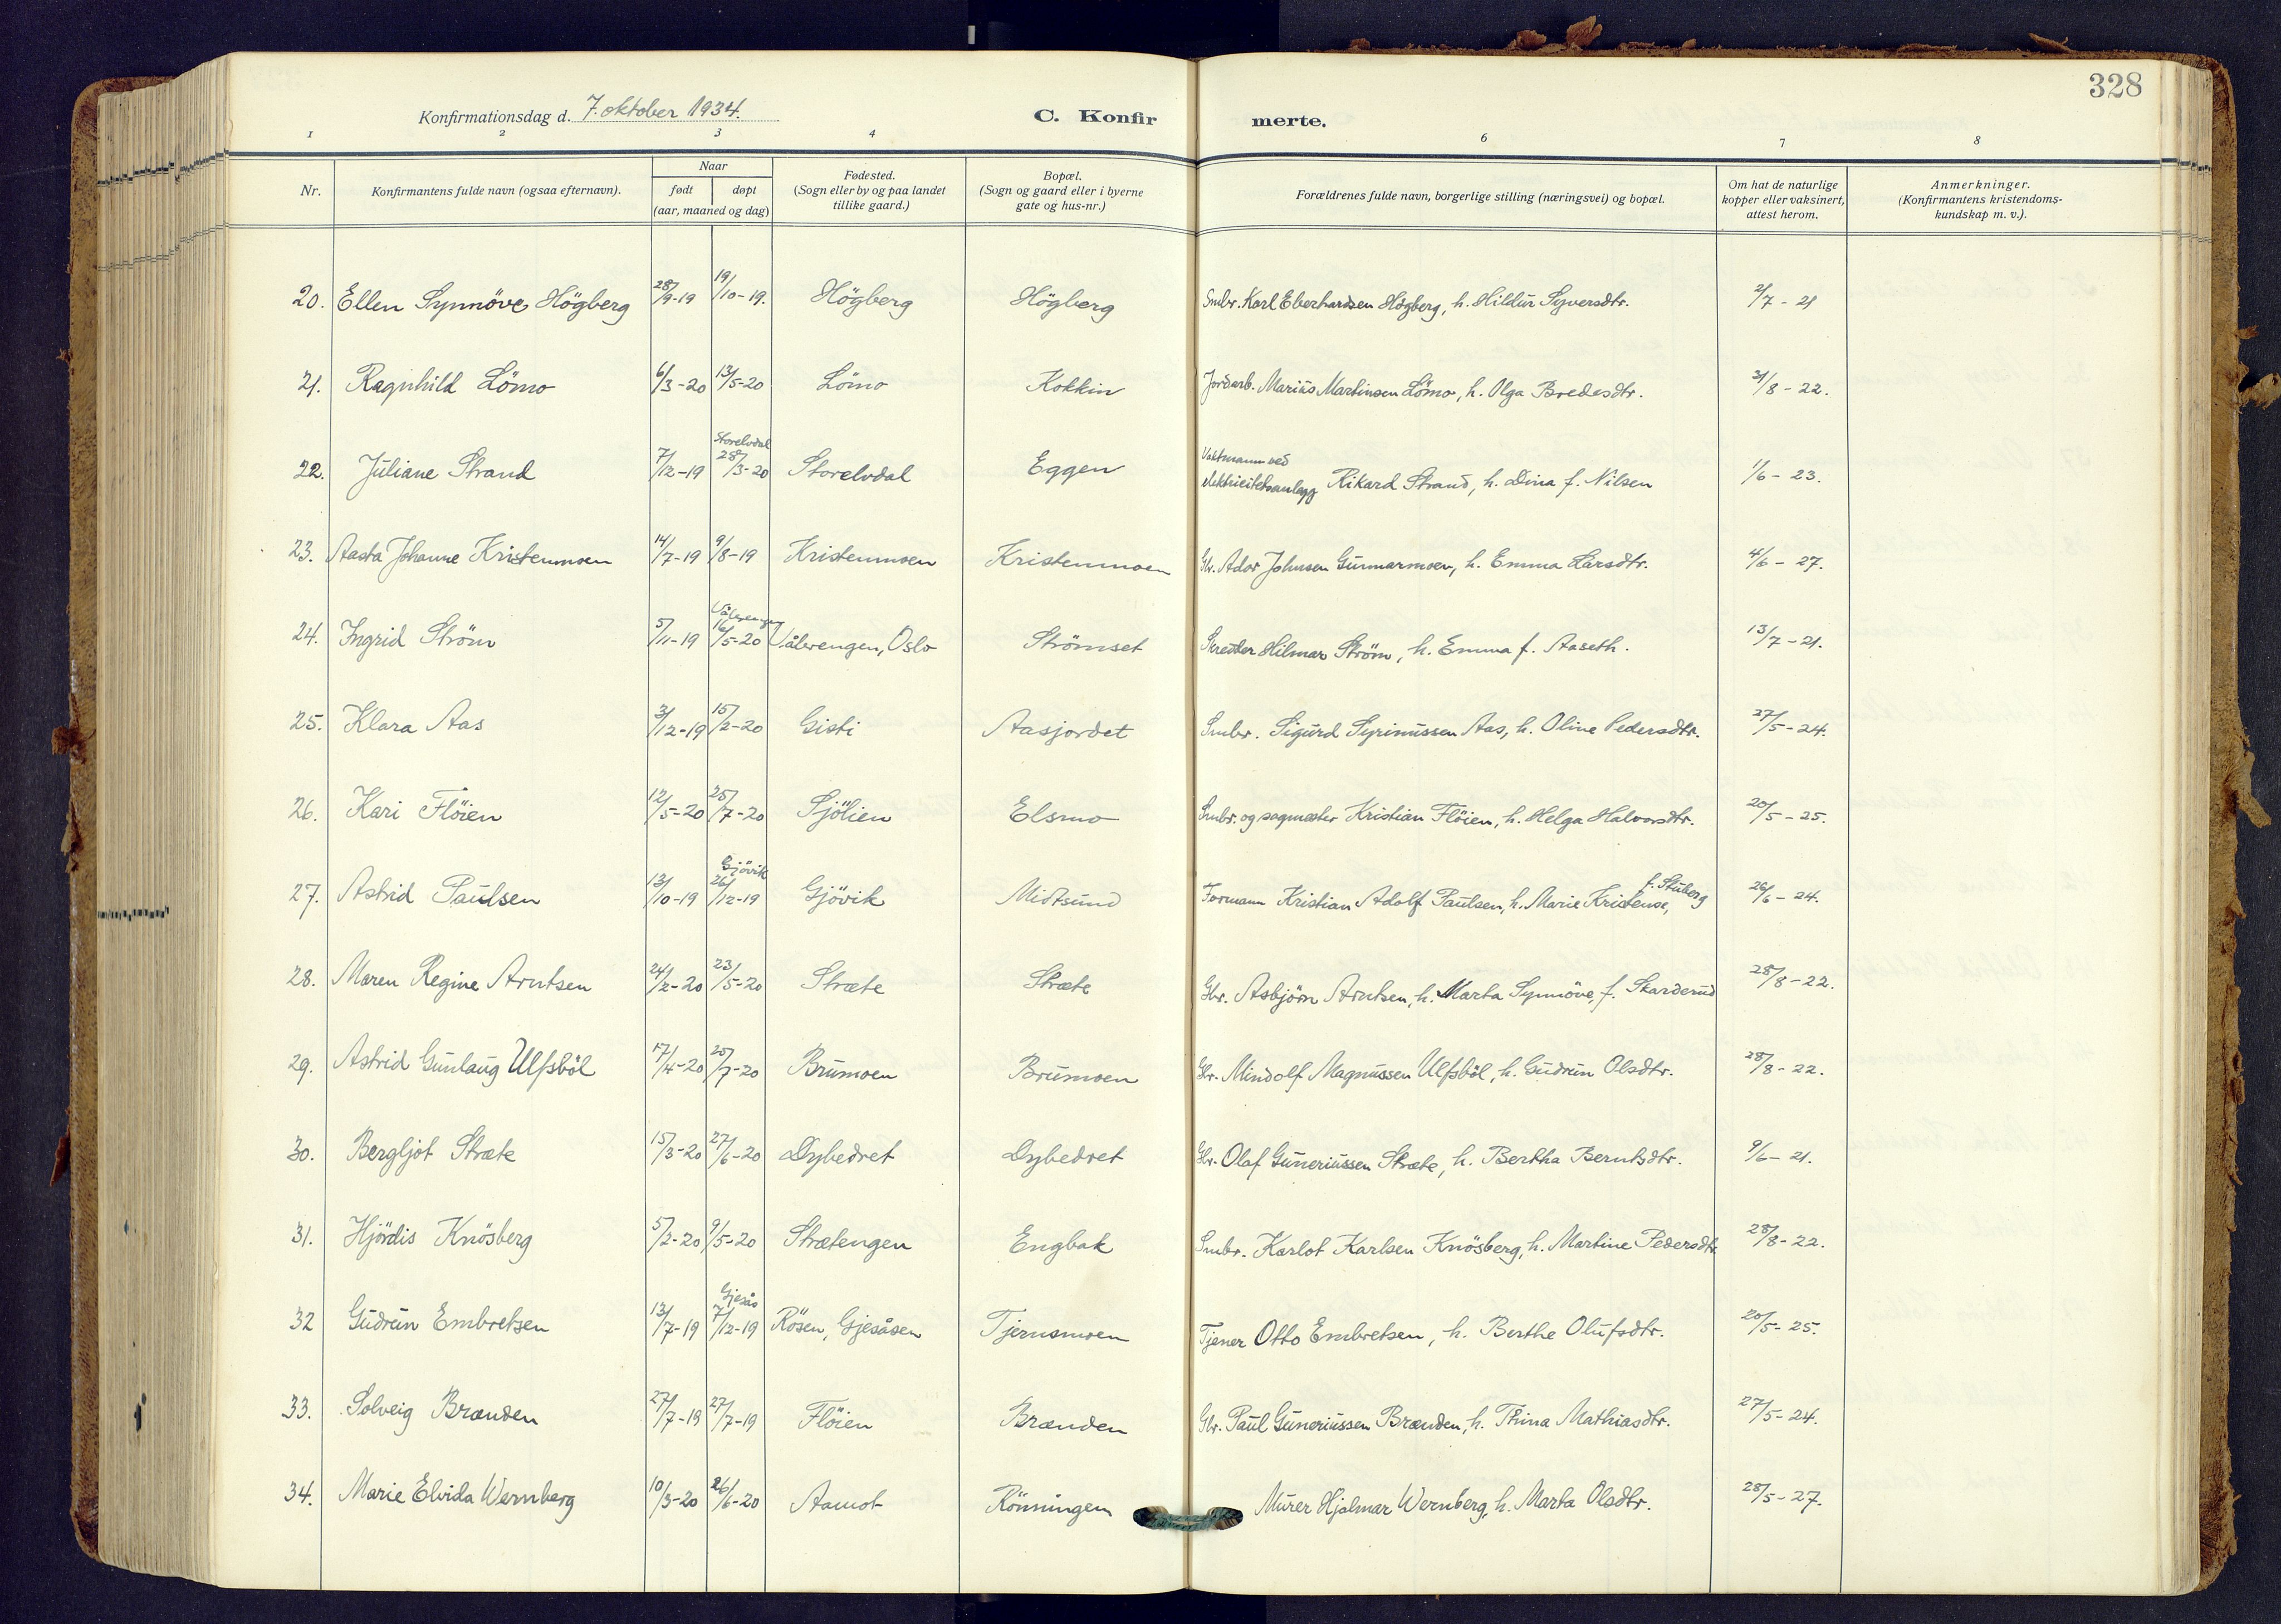 328
Konfirmationsdag d. 7. oktober 1934.
C. Konfirmerte.
1 2 3 4 6 7 8
Nr. Konfirmantens fulde navn (ogsaa efternavn). Naar født døpt (aar, maaned og dag) Fødested. (Sogn eller by og paa landet tillike gaard.) Bopæl. (Sogn og gaard eller i byerne gate og hus-nr.) Forældrenes fulde navn, borgerlige stilling (næringsvei) og bopæl. Om hat de naturlige kopper eller vaksinert, attest herom. Anmerkninger. (Konfirmantens kristendoms-kundskap m. v.).
20. Ellen Synnöve Högberg 28/9-19 19/10-19. Högberg Högberg Smbr. Karl Eberhardsen Högberg, h. Hildur Syversdtr. 2/7-21
21. Ragnhild Lömo 6/3-20 13/5-20 Lömo Kokkin Jordarb. Marius Martinsen Lömo, h. Olga Bredesdtr. 31/8-22.
22. Juliane Strand 7/12-19 Storelvdal 28/3-20 Storelvdal Eggen Vaktmann ved elektricitetsanlegg Rikard Strand, h. Dina f. Nilsen 1/6-23.
23. Aasta Johanne Kristenmoen 14/7-19 9/8-19 Kristenmoen Kristenmoen Gbr. Ador Johnsen Gunnarmoen, h. Emma Larsdtr. 4/6-27.
24. Ingrid Ström 5/11-19 Vålerengen 16/5-20 Vålerengen, Oslo Strömset Skredder Hilmar Ström, h. Emma f. Aaseth. 13/7-21.
25. Klara Aas 3/12-19 15/2-20 Gisti Aasjordet Smbr. Sigurd Syrinussen Aas, h. Oline Pedersdtr. 27/5-24.
26. Kari Flöien 12/5-20 25/7-20 Sjölien Elsmo Smbr. og sagmester Kristian Flöien, h. Helga Halvorsdtr. 20/5-25.
27. Astrid Paulsen 13/10-19 Gjövik 26/12-19 Gjövik Midtsund Formann Kristian Adolf Paulsen, h. Marie Kristense, f. Stuberg 26/6-24.
28. Maren Regine Arntsen 24/2-20 23/5-20 Stræte Stræte Gbr. Asbjörn Arntsen, h. Marta Synnöve, f. Skarderud 28/8-22.
29. Astrid Gunlaug Ulfsböl 17/4-20 25/7-20 Brumoen Brumoen Gbr. Mindolf Magnussen Ulfsböl, h. Gudrun Olsdtr. 28/8-22.
30. Bergljot Stræte 15/3-20 27/6-20 Dybedret Dybedret Gbr. Olaf Guneriussen Stræte, h. Bertha Berntsdtr. 9/6-21.
31. Hjördis Knösberg 5/2-20 9/5-20 Strætengen Engbak Smbr. Karlot Karlsen Knösberg, h. Martine Pedersdtr. 28/8-22.
32 Gudrun Embretsen 13/7-19 Gjesås 7/12-19 Rösen, Gjesåsen Tjernsmoen Tjener Otto Embretsen, h. Berthe Olufsdtr. 20/5-25.
33. Solveig Brænden 27/7-19 27/7-19 Flöien Brænden Gbr. Paul Guneriussen Brænden, h. Thina Mathiasdtr. 27/5-24.
34. Marie Elvida Wernberg 10/3-20 26/6-20 Aamot Rönningen Murer Hjalmar Wernberg, h. Marta Olsdtr. 28/5-27.